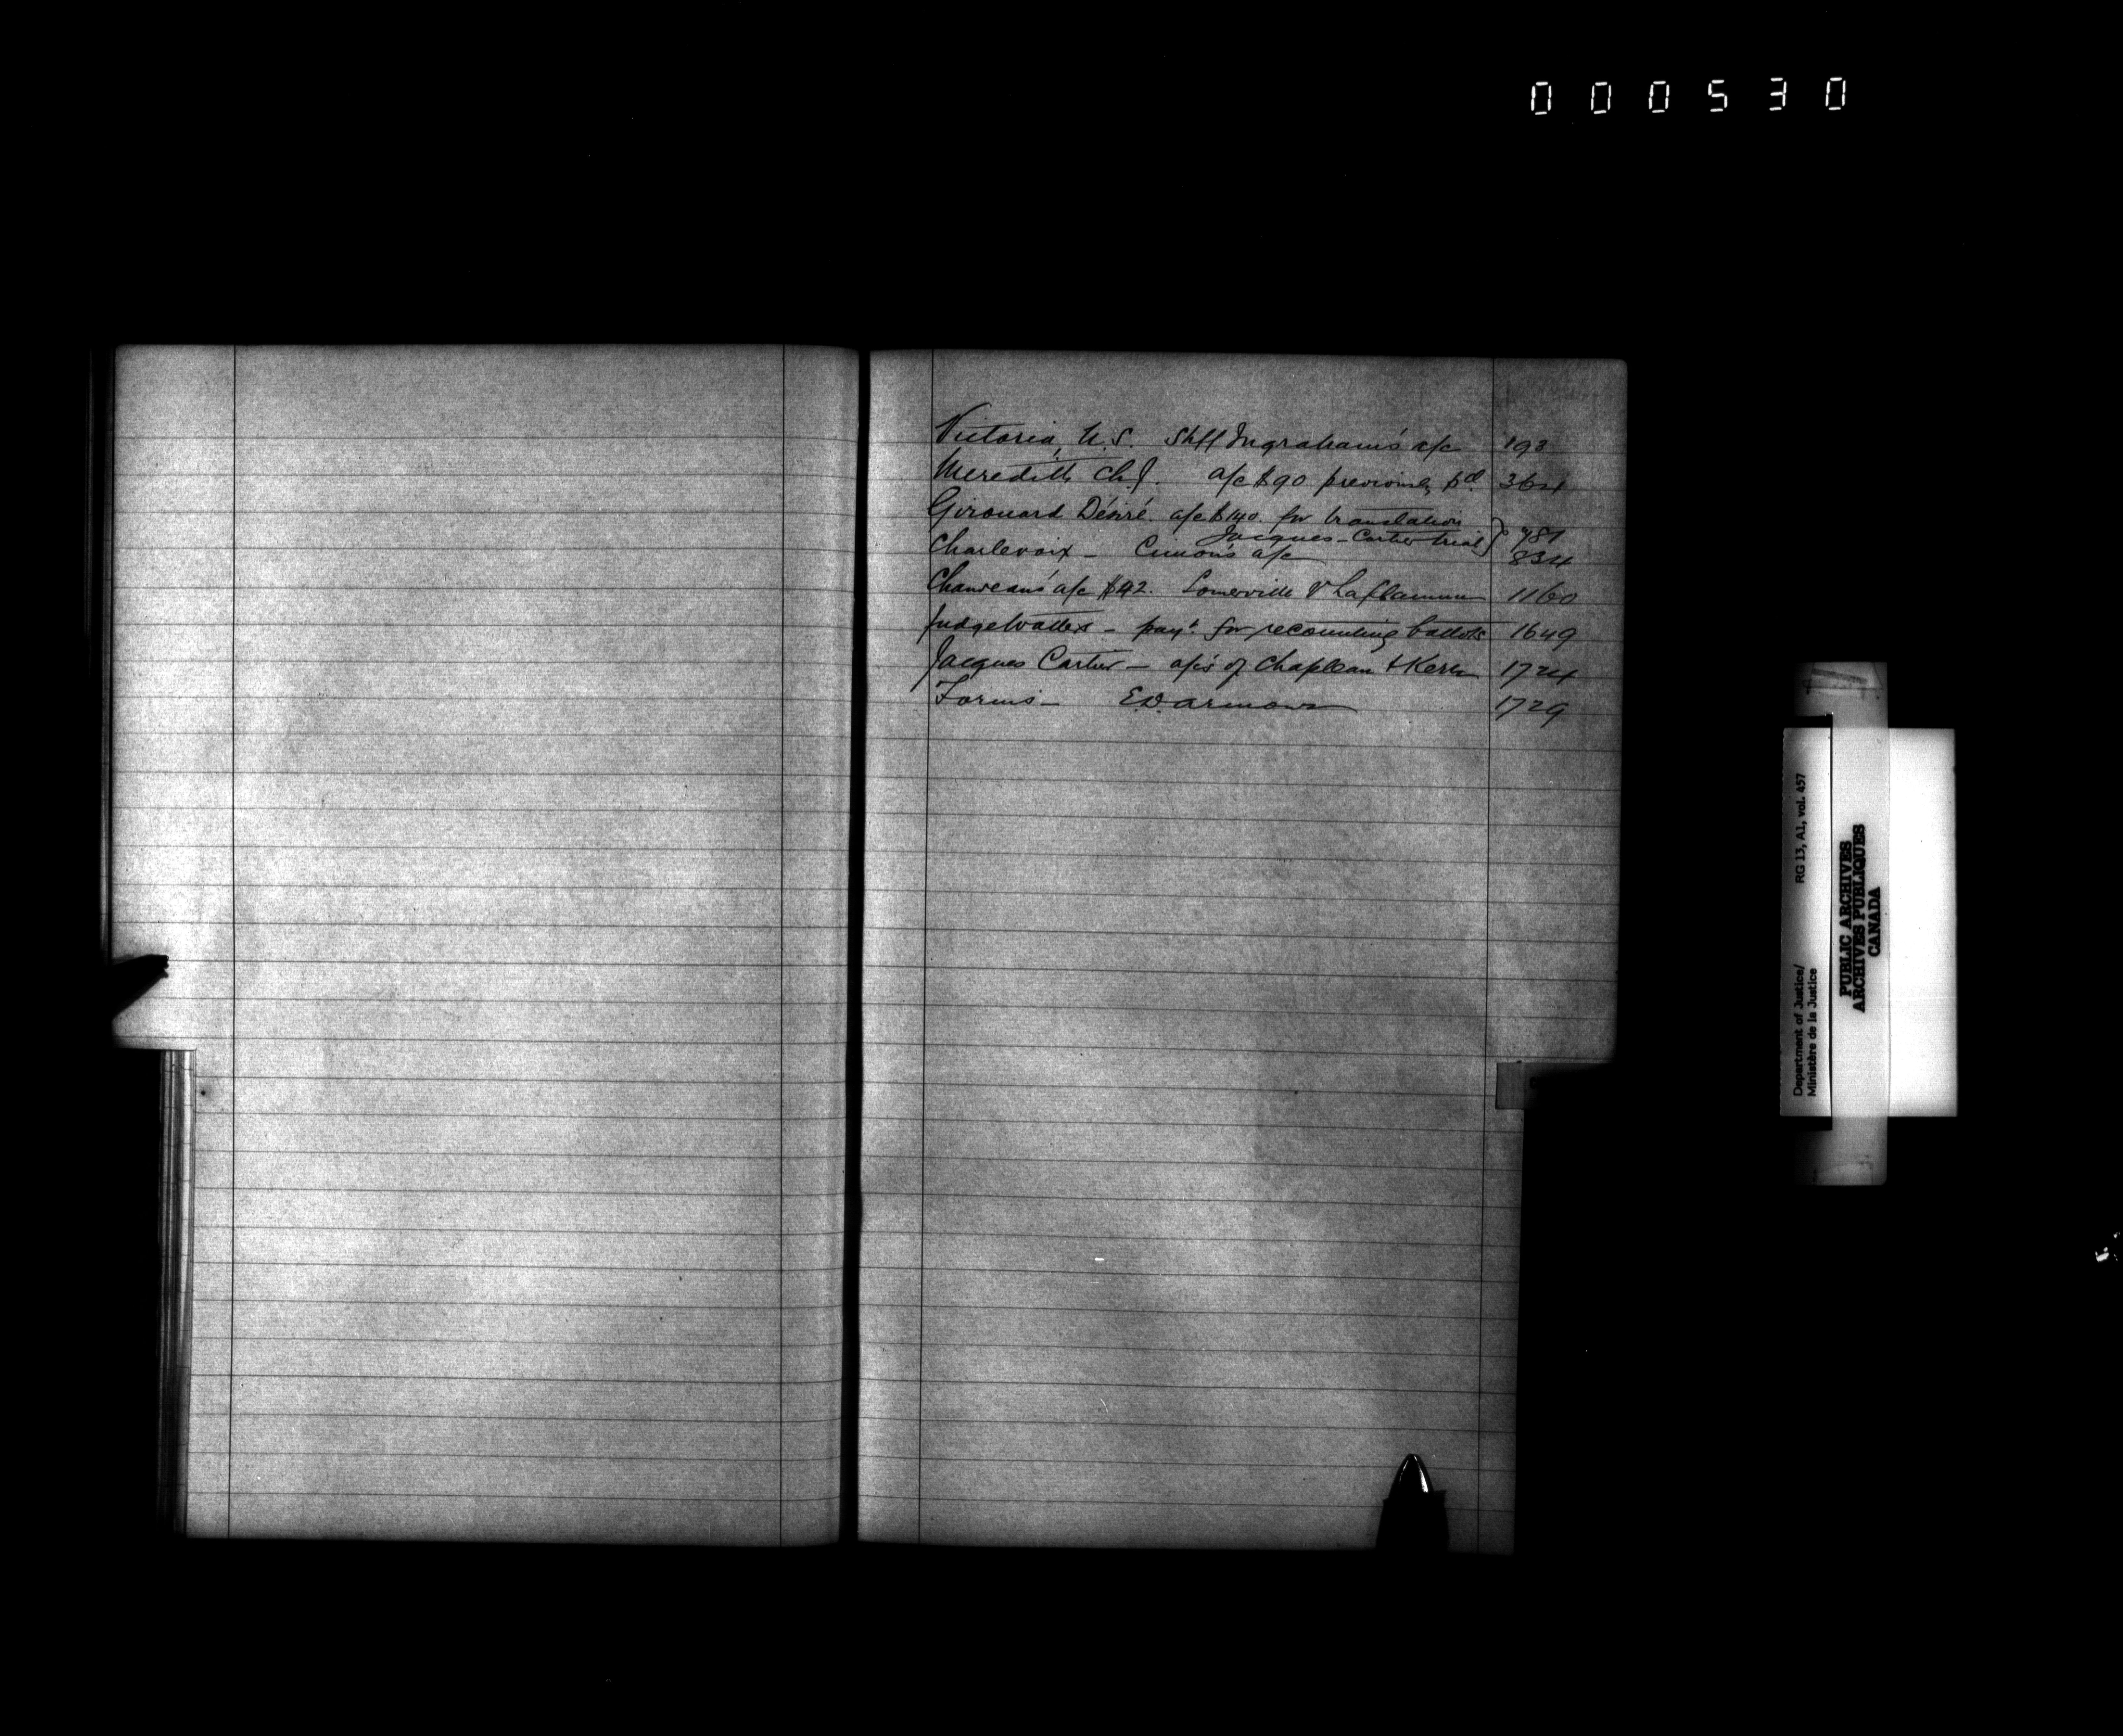 000530
Victoria, N.S. Shff Ingraham's a/c 193
Meredith Ch. J. a/c $90 previously pd. 364
Girouard Désiré. a/c $140. for translation
Jacques-Cartier trial } 781
Charlevoix - Cimon's a/c 834
Chauveau's a/c $42. Somerville v Laflamme 1160
Judge - payt. for recounting ballots 1649
Jacques Cartier - a/cs of Chapleau & Kerr 1724
Forms - E.D. Armour 1729
Department of Justice/ RG 13, A1, vol. 457
Ministère de la Justice
PUBLIC ARCHIVES
ARCHIVES PUBLIQUES
CANADA